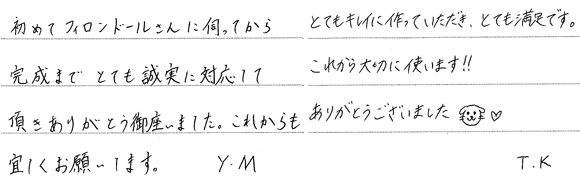 初めてフィロンドールさんに伺ってから
完成までとても誠実に対応して
頂きありがとう御座いました。これからも
宜しくお願いします。 Y.M
とてもキレイに作っていただき、とても満足です。
これから大切に使います!!
ありがとうございました
T.K